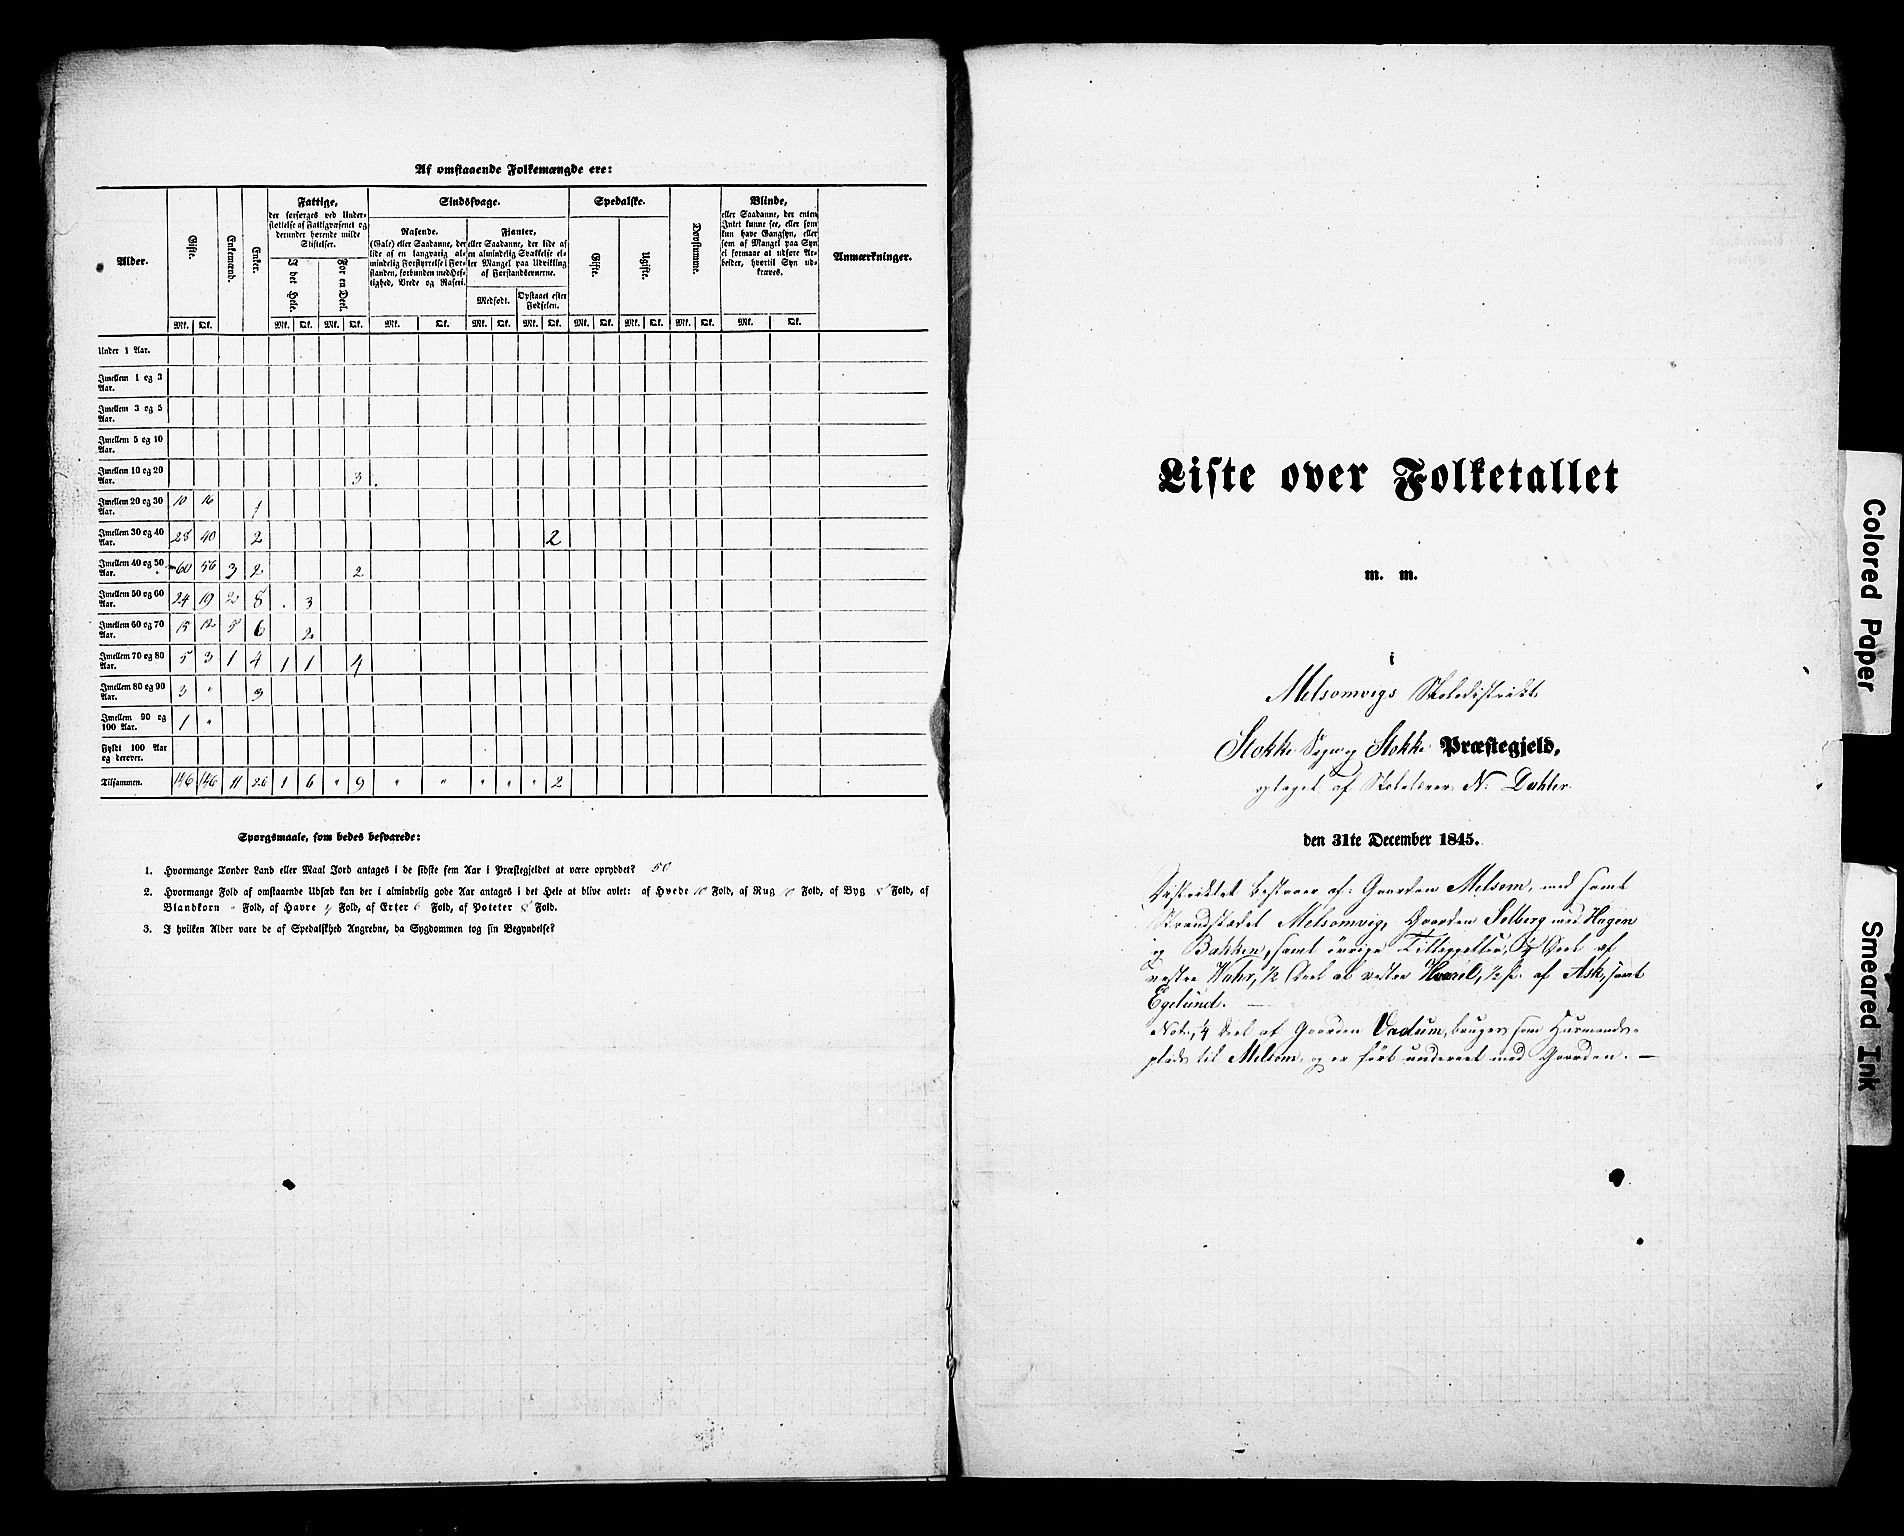 Af omstaaende Folkemængde ere:
Alder.
Gifte.
Enkemænd.
Enker.
Fattige,
der forsørges ved Under-
støttelse af Fattigvæsenet og
derunder hørende milde
Stiftelser.
I det Hele.
For en Deel.
Sindssvage.
Rasende.
(Gale) eller Saadanne, der
lide af en langvarig al-
mindelig Forstyrrelse i For-
standen, forbunden med Hef-
tighed, Vrede og Raseri.
Fjanter,
eller Saadanne, der lide af
en almindelig Svækkelse el-
ler Mangel paa Udvikling
af Forstandsevnerne.
Medfødt.
Opstaaet efter
Fødselen.
Spedalske.
Gifte.
Ugifte.
Døvstumme.
Blinde,
eller Saadanne, der enten
Intet kunne see, eller som
kun have Gangsyn, eller
som af Mangel paa Syn
ei formaae at udføre Ar-
beider, hvortil Syn ud-
kræves.
Anmærkninger.
Mk. Qk. Mk. Qk. Mk. Qk. Mk. Qk. Mk. Qk. Mk. Qk. Mk. Qk. Mk. Qk. Mk. Qk. Mk. Qk.
Under 1 Aar.
Imellem 1 og 3
Aar.
Imellem 3 og 5
Aar.
Imellem 5 og 10
Aar.
Imellem 10 og 20
Aar. 3
Imellem 20 og 30
Aar. 10 16 1
Imellem 30 og 40
Aar. 28 40 2 2
Imellem 40 og 50
Aar. 60 56 3 2 2
Imellem 50 og 60
Aar. 24 19 2 8 . 3
Imellem 60 og 70
Aar. 15 12 5 6 2
Imellem 70 og 80
Aar. 5 3 1 4 1 1 4
Imellem 80 og 90
Aar. 3 " 3
Imellem 90 og
100 Aar. 1 "
Fyldt 100 Aar
og derover.
Tilsammen. 146 146 11 26 1 6 " 9 " " " " " 2
Spørgsmaale, som bedes besvarede:
1. Hvormange Tønder Land eller Maal Jord antages i de sidste fem Aar i Præstegjeldet at være opryddet? 50
2. Hvormange Fold af omstaaende Udsæd kan der i almindelig gode Aar antages i det Hele at blive avlet: af Hvede 10 Fold, af Rug 10 Fold, af Byg 8 Fold, af
Blandkorn " Fold, af Havre 4 Fold, af Erter 6 Fold, af Poteter 8 Fold.
3. I hvilken Alder vare de af Spedalskhed Angrebne, da Sygdommen tog sin Begyndelse?
Liste over Folketallet
m. m.
i
Melsomvigs Skoledistrikt
Stokke Sogn og Stokke Præstegjeld,
optaget af Skolelærer N. Dahler
den 31te December 1845.
Distriktet bestaaer af: Gaarden Melsom, med samt
Strandstædet Melsomvig, Gaarden Solberg med Hagen
og Bakken, samt øvrige Deel af
vestre 1/2 Deel af vestre 1/2 af Ask, samt
Egelund.
Not: 1/4 Deel af Gaarden Vadum, bruges som Huusmands-
plads til Melsom, og erført undereet med Gaarden. —
Colored Paper
Smeared Ink